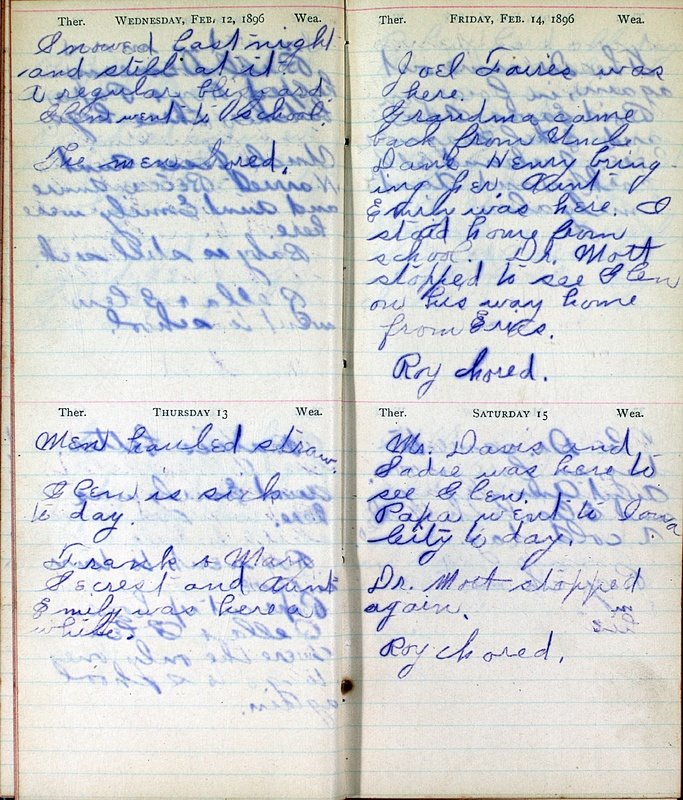 Ther. WEDNESDAY, FEB. 12, 1896 Wea.
Snowed last night
and still at it.
A regular blizzard.
Glen went to school.
The men chored.
Ther. THURSDAY 13 Wea.
Men hauled straw.
Glen is sick
to day.
Frank & Mary
Secrest and Aunt
Emily was here a
while.
Ther. FRIDAY, FEB. 14, 1896 Wea.
Joel Faires was
here.
Grandma came
back from Uncle
Dave Henry bring-
ing her. Aunt
Emily was here. I
staid home from
school. Dr. Mott
stopped to see Glen
on his way home
from
Roy chored.
Ther. SATURDAY 15 Wea.
Mr. Davis and
Sadie was here to
see Glen.
Papa went to Iowa
City to day.
Dr. Mott stopped
again.
Roy chored.